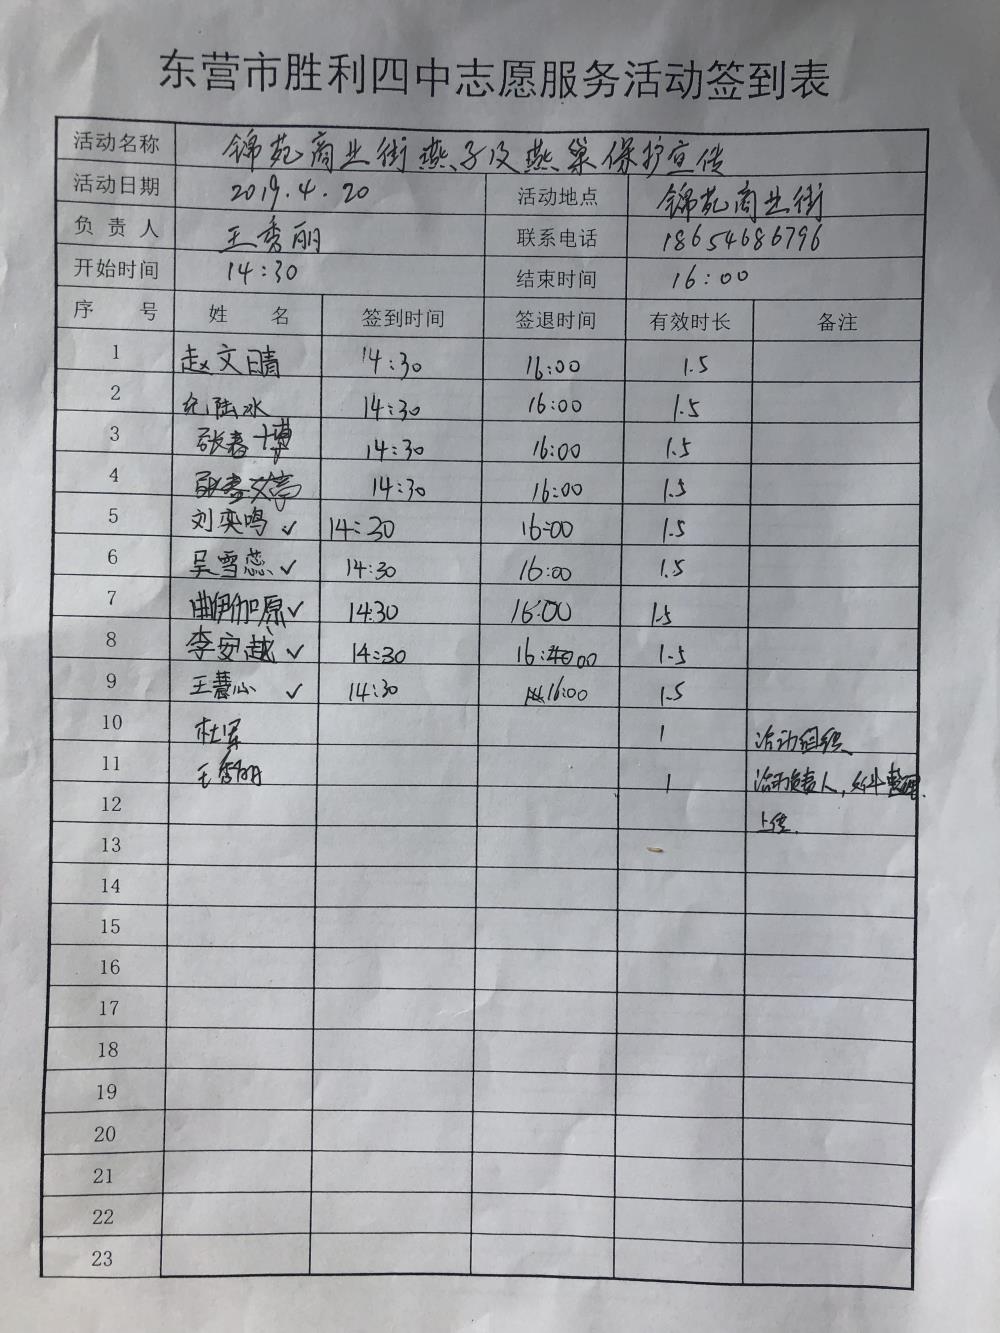 东营市胜利四中志愿服务活动签到表
活动名称 锦苑商业街燕子及燕巢保护宣传
活动日期 2019.4.20 活动地点 锦苑商业街
负责人 王秀丽 联系电话 18654686796
开始时间 14:30 结束时间 16:00
序号 姓名 签到时间 签退时间 有效时长 备注
1 赵文晴 14:30 16:00 1.5
2 纪陆冰 14:30 16:00 1.5
3 张春博 14:30 16:00 1.5
4 14:30 16:00 1.5
5 刘奕鸣 ✓ 14:30 16:00 1.5
6 吴雪蕊 ✓ 14:30 16:00 1.5
7 曲伊伽原 ✓ 14:30 16:00 1.5
8 李安越 ✓ 14:30 16:00 1.5
9 王慧心 ✓ 14:30 16:00 1.5
10 杜军 1 活动组织
11 王秀丽 1 活动负责人,整理
12 上传.
13
14
15
16
17
18
19
20
21
22
23